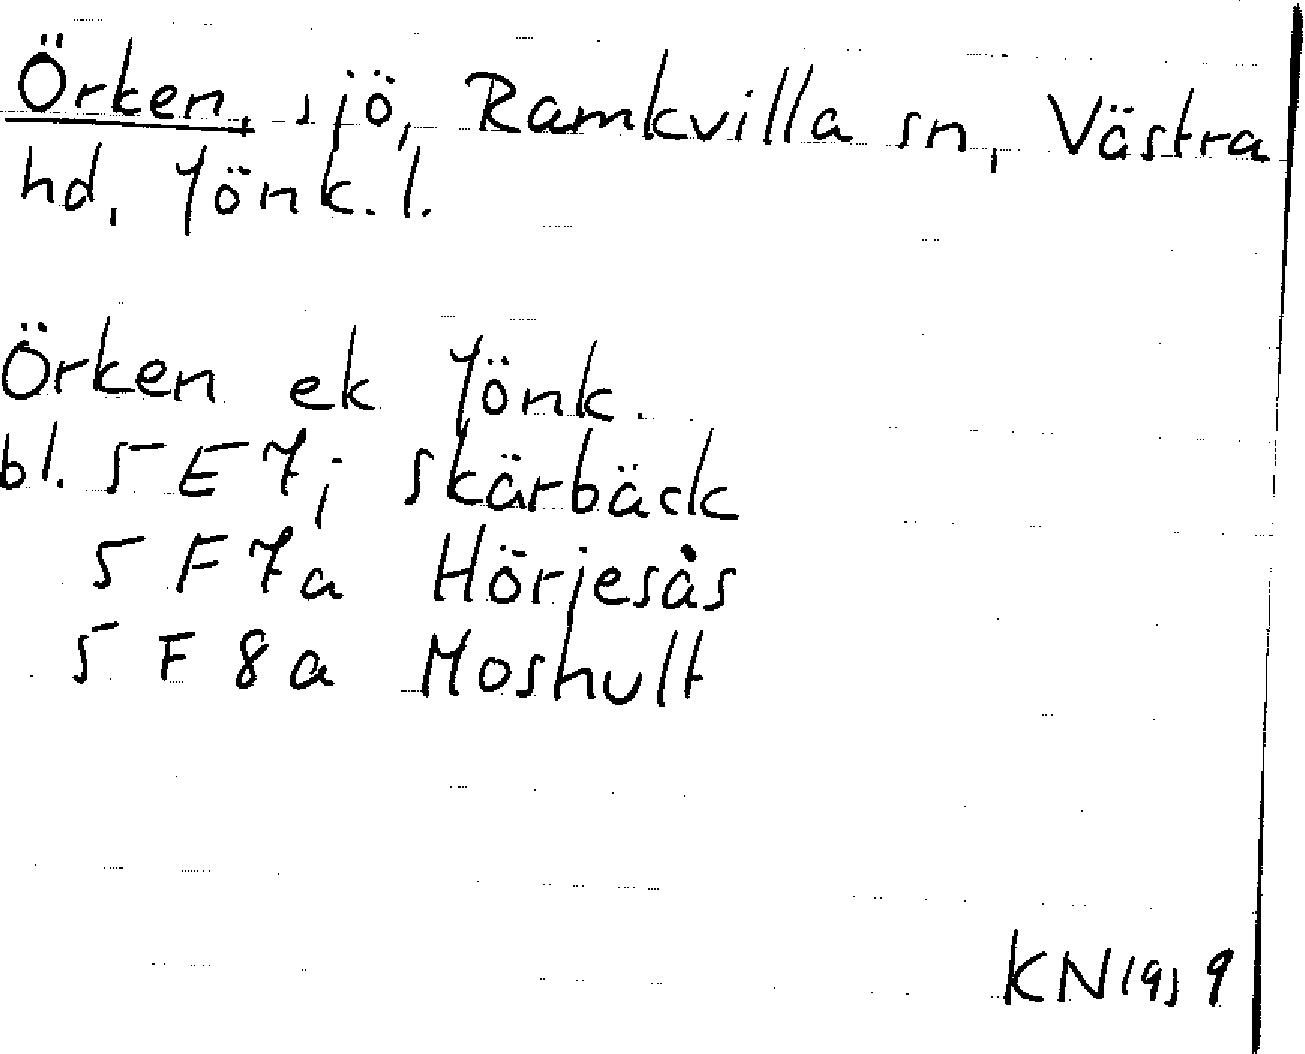 Örken, sjö, Ramkvilla sn, Västra
hd, Jönk. l.
Örken ek Jönk.
bl. 5 E 7 j Skärbäck
5 F 7 a Hörjesås
5 F 8 a Moshult
KN